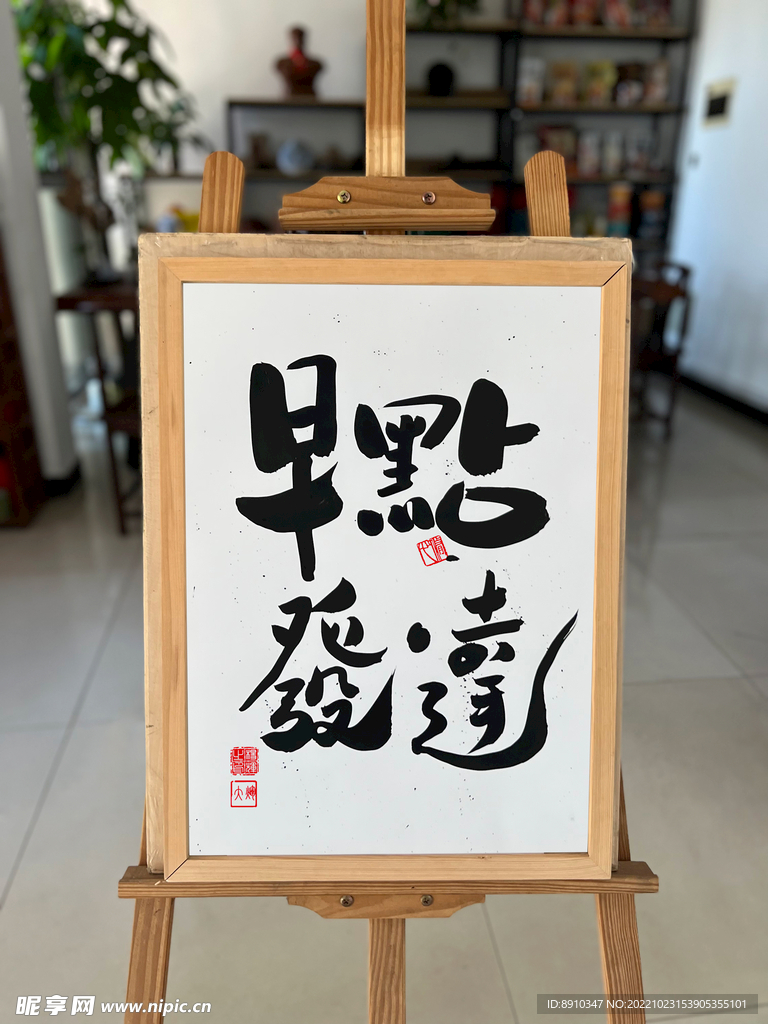 早點
發達
昵享网 www.nipic.cn
ID:8910347 NO:20221023153905355101